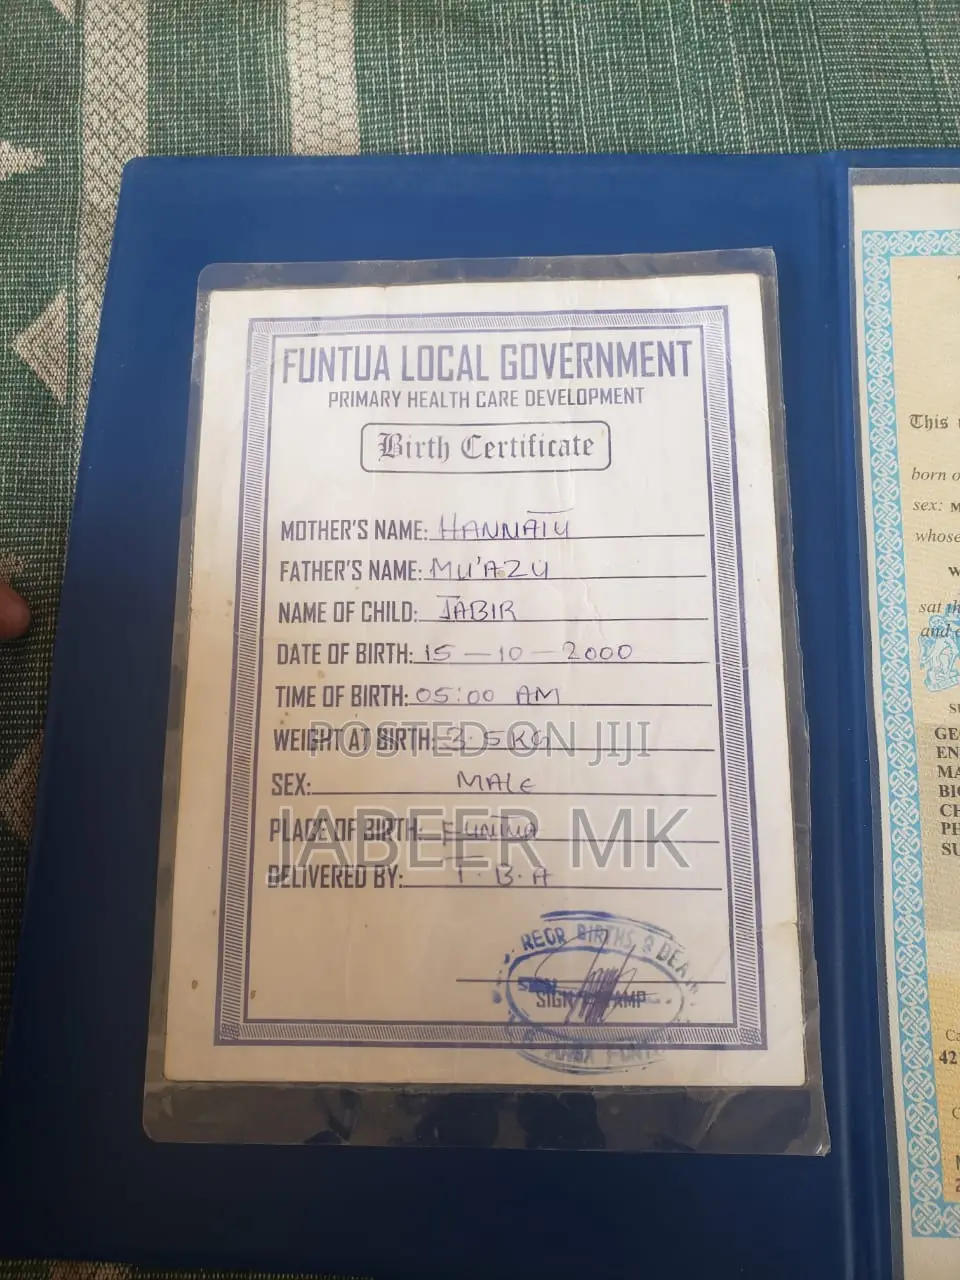 FUNTUA LOCAL GOVERNMENT
PRIMARY HEALTH CARE DEVELOPMENT
Birth Certificate
MOTHER'S NAME: HANNATU
FATHER'S NAME: MU'AZU
NAME OF CHILD: JABIR
DATE OF BIRTH: 15 - 10 - 2000
TIME OF BIRTH: 05:00 AM
WEIGHT AT BIRTH: 3.5KG
POSTED ON JIJI
SEX: MALE
PLACE OF BIRTH: FUNTUA
JABEER MK
DELIVERED BY: T.B.A
REGR BIRTHS & DEA
SIGN
SIGN AMP
This
born o
sex: M
whose
W
sat th
and
SU
GE
EN
MA
BI
CH
PH
SU
Ca
42
C